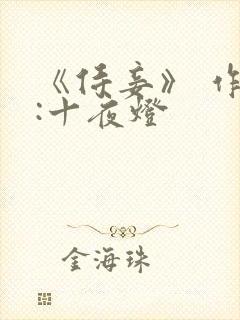 《侍妾》 作
:十夜燈
金海珠